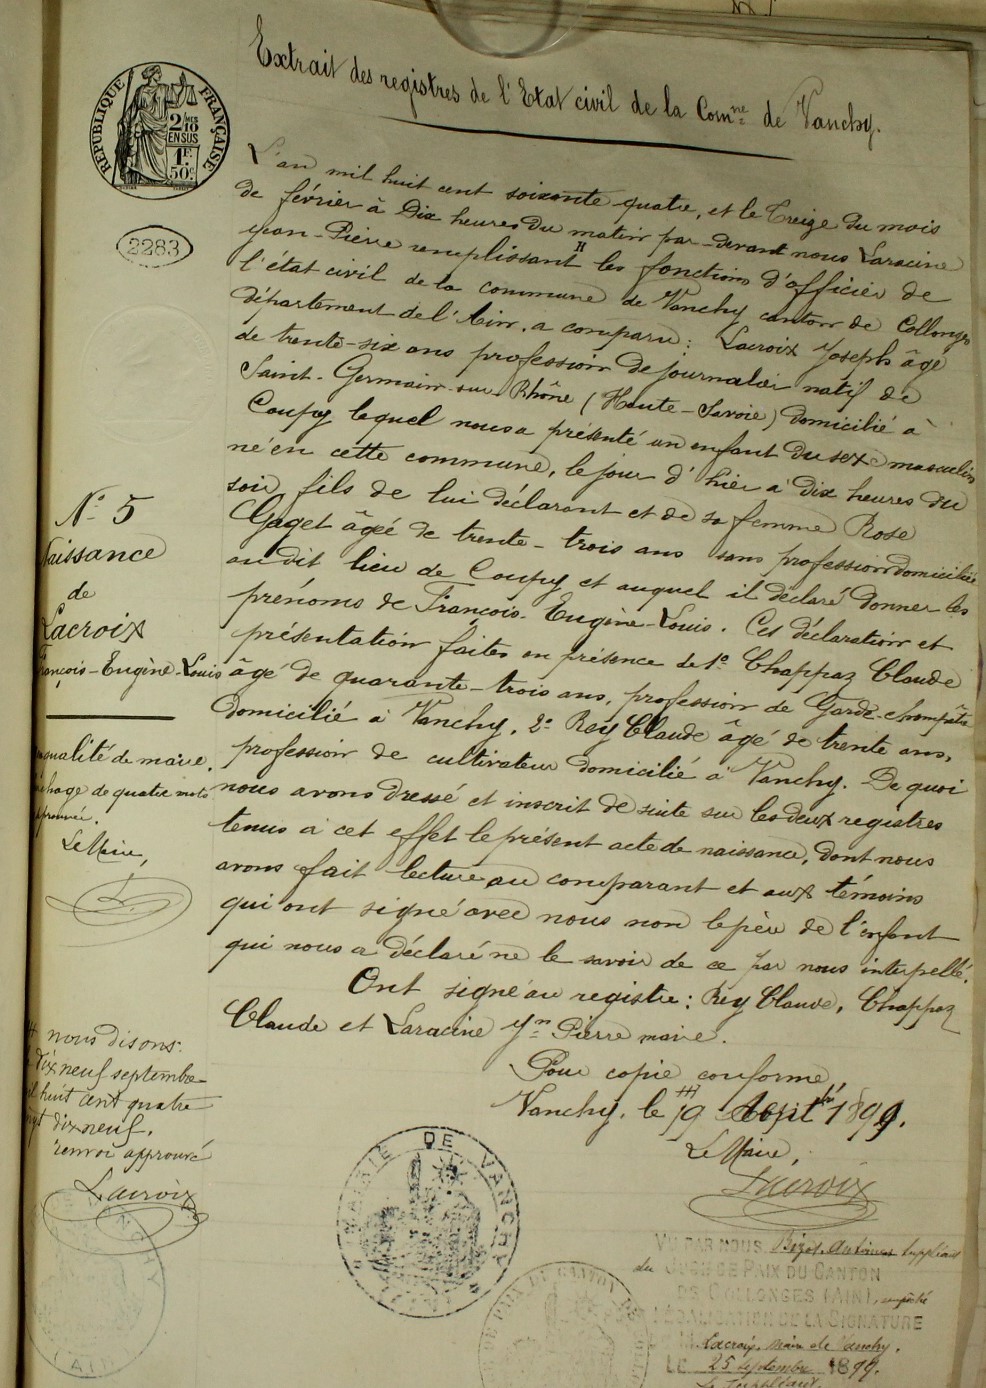 Extrait des registres de l'Etat civil de la Comne de Vanchy.
RÉPUBLIQUE FRANÇAISE
2/10 EN SUS
1F. 50c
2283
L'an mil huit cent soixante-quatre, et le Treize du mois
de février à Dix heures du matin par-devant nous Laracine
Jean-Pierre remplissant les fonctions d'officier de
l'état civil de la commune de Vanchy canton de Collonges
département de l'Ain. a comparu : Lacroix Joseph âgé
de trente-six ans profession de journalier natif de
Saint-Germain-sur-Rhône (Haute-Savoie) domicilié à
Coupy lequel nous a présenté un enfant du sexe masculin
né en cette commune, le jour d'hier à Dix heures du
soir, fils de lui déclarant et de sa femme Rose
Gaget âgée de trente-trois ans sans profession domiciliée
au dit lieu de Coupy et auquel il déclaré donner les
prénoms de François-Eugène-Louis. Ces déclaration et
présentation faites en présence de 1o Chappaz Claude
âgé de quarante-trois ans, profession de Garde-champêtre
domicilié à Vanchy, 2o Rey Claude âgé de trente ans,
profession de cultivateur domicilié à Vanchy. De quoi
nous avons dressé et inscrit de suite sur les deux registres
tenus à cet effet le présent acte de naissance, dont nous
avons fait lecture au comparant et aux témoins
qui ont signé avec nous non le père de l'enfant
qui nous a déclaré ne le savoir de ce par nous interpellé.
Ont signé au registre : Rey Claude, Chappaz
Claude et Laracine Jn Pierre maire.
Pour copie conforme
Vanchy, le 19 1899.
Le Maire,
Lacroix
No 5
Naissance
de
Lacroix
François-Eugène-Louis
de maire,
de quatre mots
Le Maire,
nous disons:
dix neuf septembre
mil huit cent quatre
vingt dix neuf.
renvoi approuvé
Lacroix
MAIRIE DE VANCHY
(AIN)
VU PAR NOUS Bizot, Antoine Suppléant
du JUGE DE PAIX DU CANTON
DE COLLONGES (AIN), empêché
LÉGALISATION DE LA SIGNATURE
M. Lacroix, maire de Vanchy.
LE 25 septembre 1899.
Le Suppléant